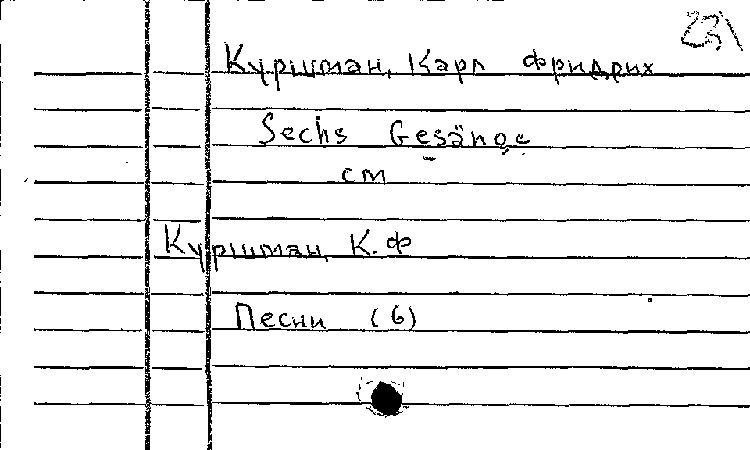 Куршман, Карл Фридрих
Sechs Gesänge
см
Куршман, К.Ф
Песни (6)